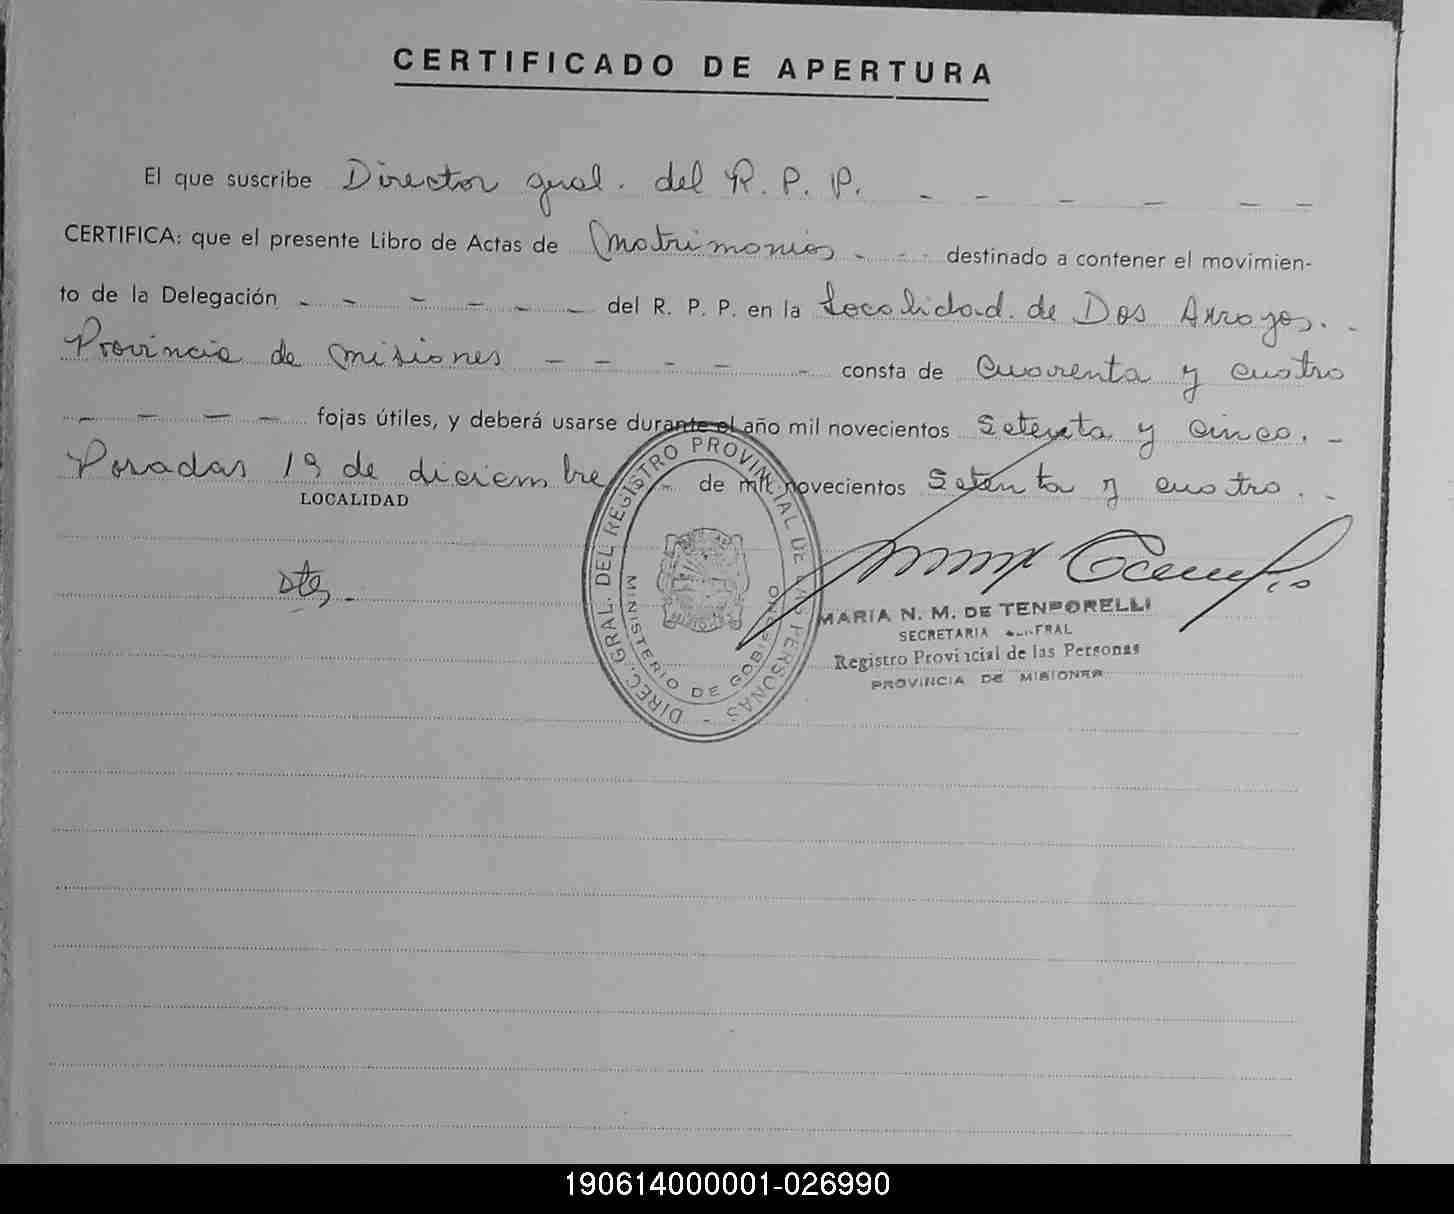 CERTIFICADO DE APERTURA
El que suscribe Director gral. del R. P. P. - - - - - -
CERTIFICA: que el presente Libro de Actas de Matrimonios - - - destinado a contener el movimien-
to de la Delegación - - - - - - del R. P. P. en la Localidad de Dos Arroyos. -
Provincia de Misiones - - - - - consta de Cuarenta y cuatro
- - - - fojas útiles, y deberá usarse durante el año mil novecientos Setenta y cinco. -
Posadas 19 de diciembre - de mil novecientos Setenta y cuatro. -
LOCALIDAD
DIREC. GRAL. DEL REGISTRO PROVINCIAL DE LAS PERSONAS -
MINISTERIO DE GOBIERNO
MARIA N. M. DE TENPORELLI
SECRETARIA GENERAL
Registro Provincial de las Personas
PROVINCIA DE MISIONES
190614000001-026990